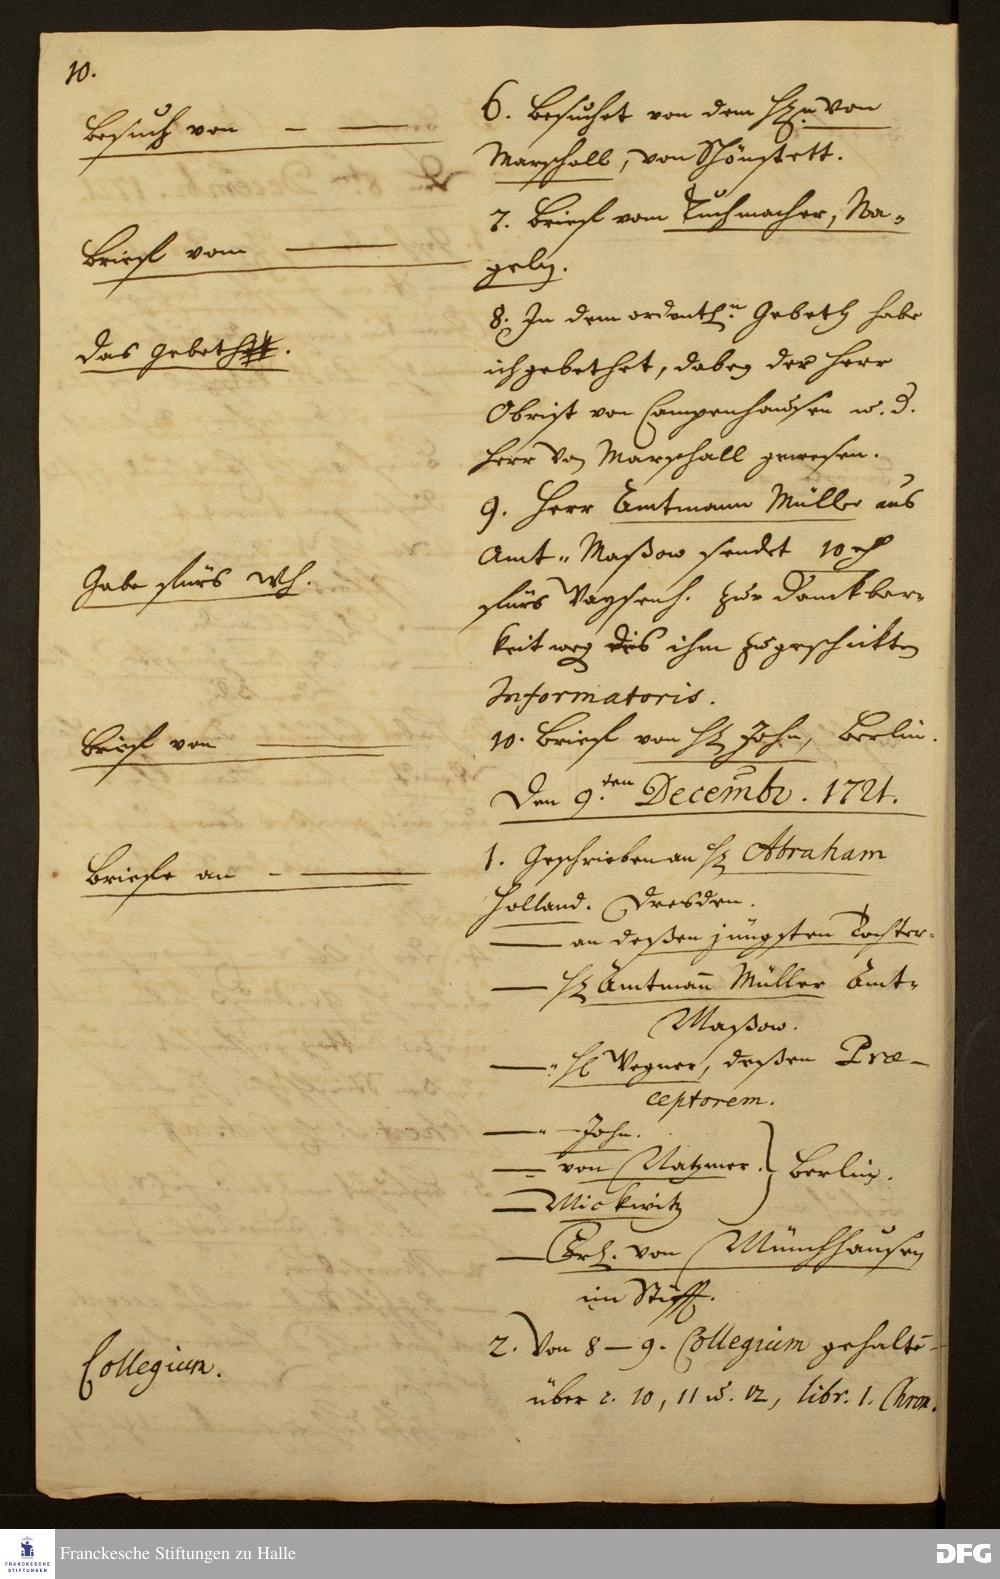 10.
Besuch von
6. Besuchet von dem H. von
Marschall, von Schönstett.
Brief vom
7. Brief vom Tuchmacher, Na-
geln.
das Gebeth.
8. In dem ordentl.n Gebeth habe
ich gebethet, dabey der Herr
Obrist von Campenhausen u. d.
Herr von Marschall gewesen.
9. Herr Amtmann Müller aus
Amt-Maßow sendet 10
Gabe fürs Wh.
fürs Waysenh. zur Danckbar-
keit weg des ihm zugeschickten
Informatoris.
Brief von
10. Brief von H. John, Berlin.
Den 9.ten Decembr. 1721.
Briefe an
1. Geschrieben an H. Abraham
Holland. Dresden.
— an deßen jüngsten Tochter.
— H. Amtmann Müller Amt-
Maßow.
— H. Wegner, deßen Præ-
ceptorem.
— John.
— von Natzmer. } Berlin.
— Mickwitz
— Frl. von Münchhausen
im Stifft.
Collegium.
2. Von 8 – 9. Collegium gehalten
über c. 10, 11 u. 12, libr. 1. Chron.
Franckesche Stiftungen zu Halle
FRANCKESCHE
STIFTUNGEN
DFG